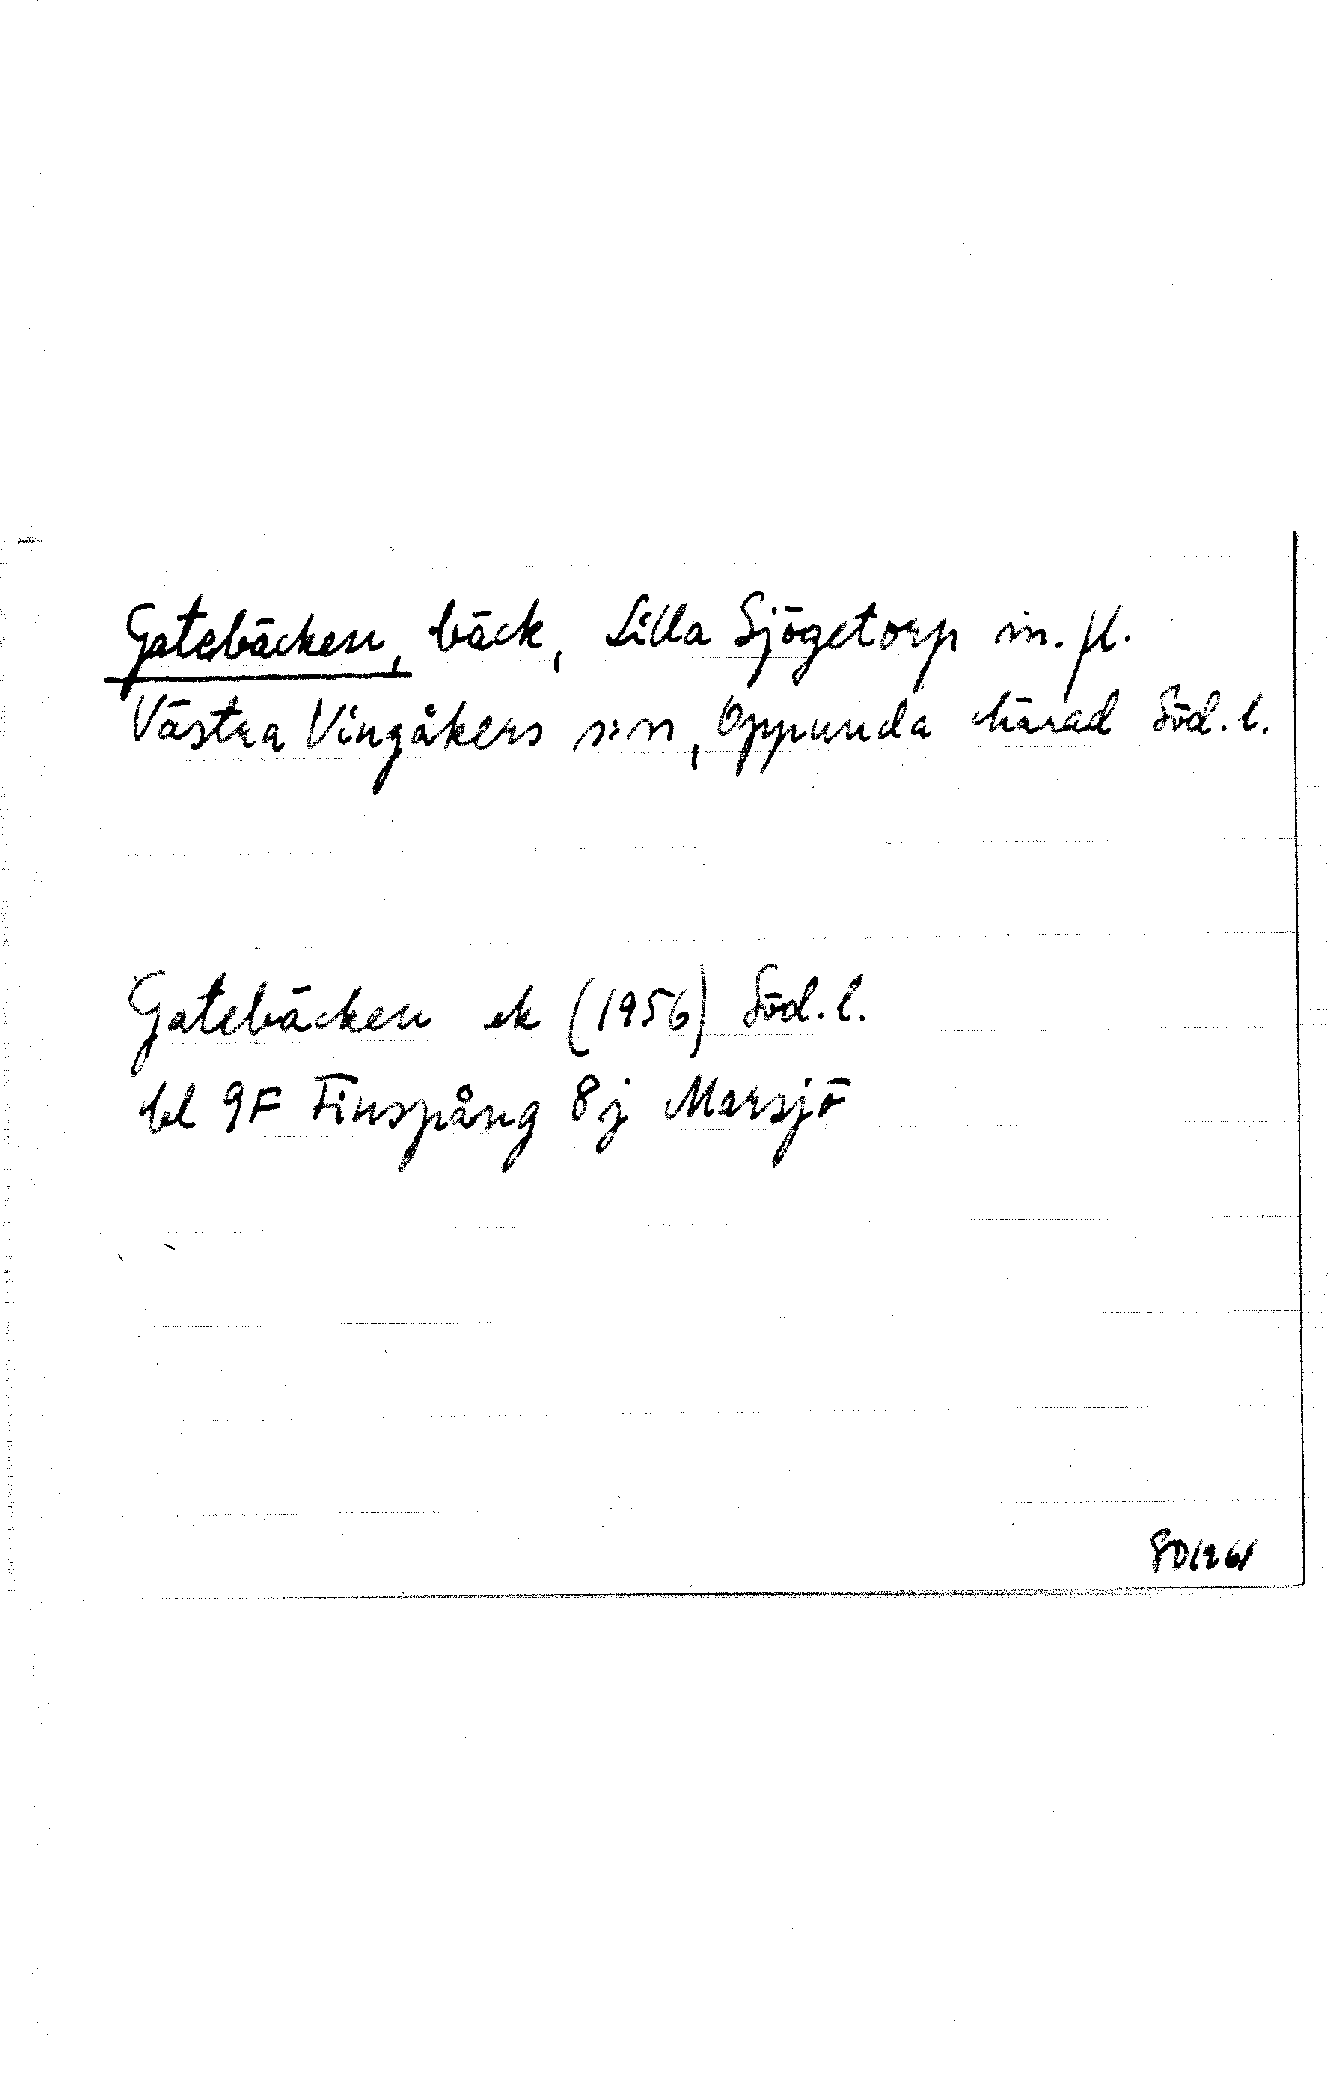 Gatebäcken, bäck, Lilla Sjögetorp m. fl.
Västra Vingåkers s:n, Oppunda härad Söd. l.
Gatebäcken ek (1956) Söd. l.
bl 9F Finspång 8j Marsjö